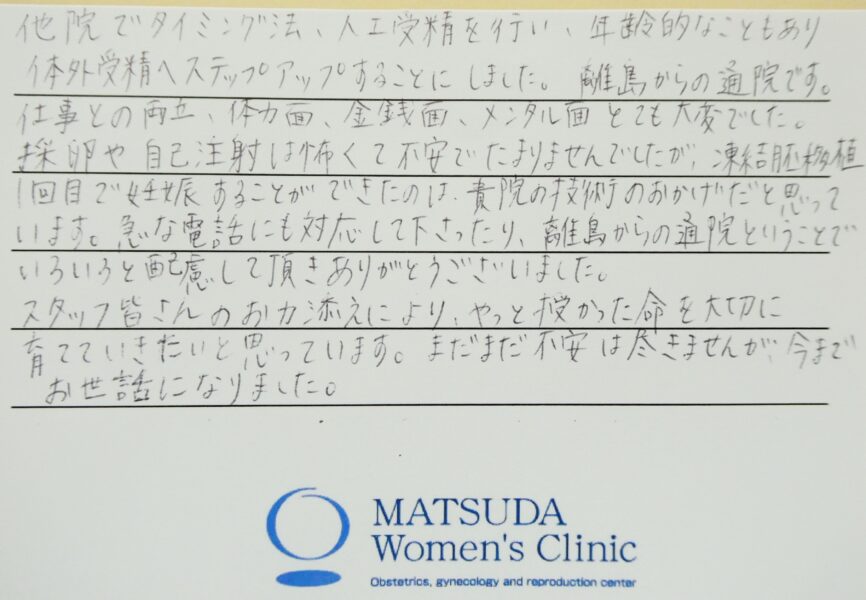 他院でタイミング法、人工受精を行い、年齢的なこともあり
体外受精へステップアップすることにしました。離島からの通院です。
仕事との両立、体力面、金銭面、メンタル面とても大変でした。
採卵や自己注射は怖くて不安でたまりませんでしたが、凍結胚移植
1回目で妊娠することができたのは、貴院の技術のおかげだと思って
います。急な電話にも対応して下さったり、離島からの通院ということで
いろいろと配慮して頂きありがとうございました。
スタッフ皆さんのお力添えにより、やっと授かった命を大切に
育てていきたいと思っています。まだまだ不安は尽きませんが、今まで
お世話になりました。
MATSUDA
Women's Clinic
Obstetrics, gynecology and reproduction center